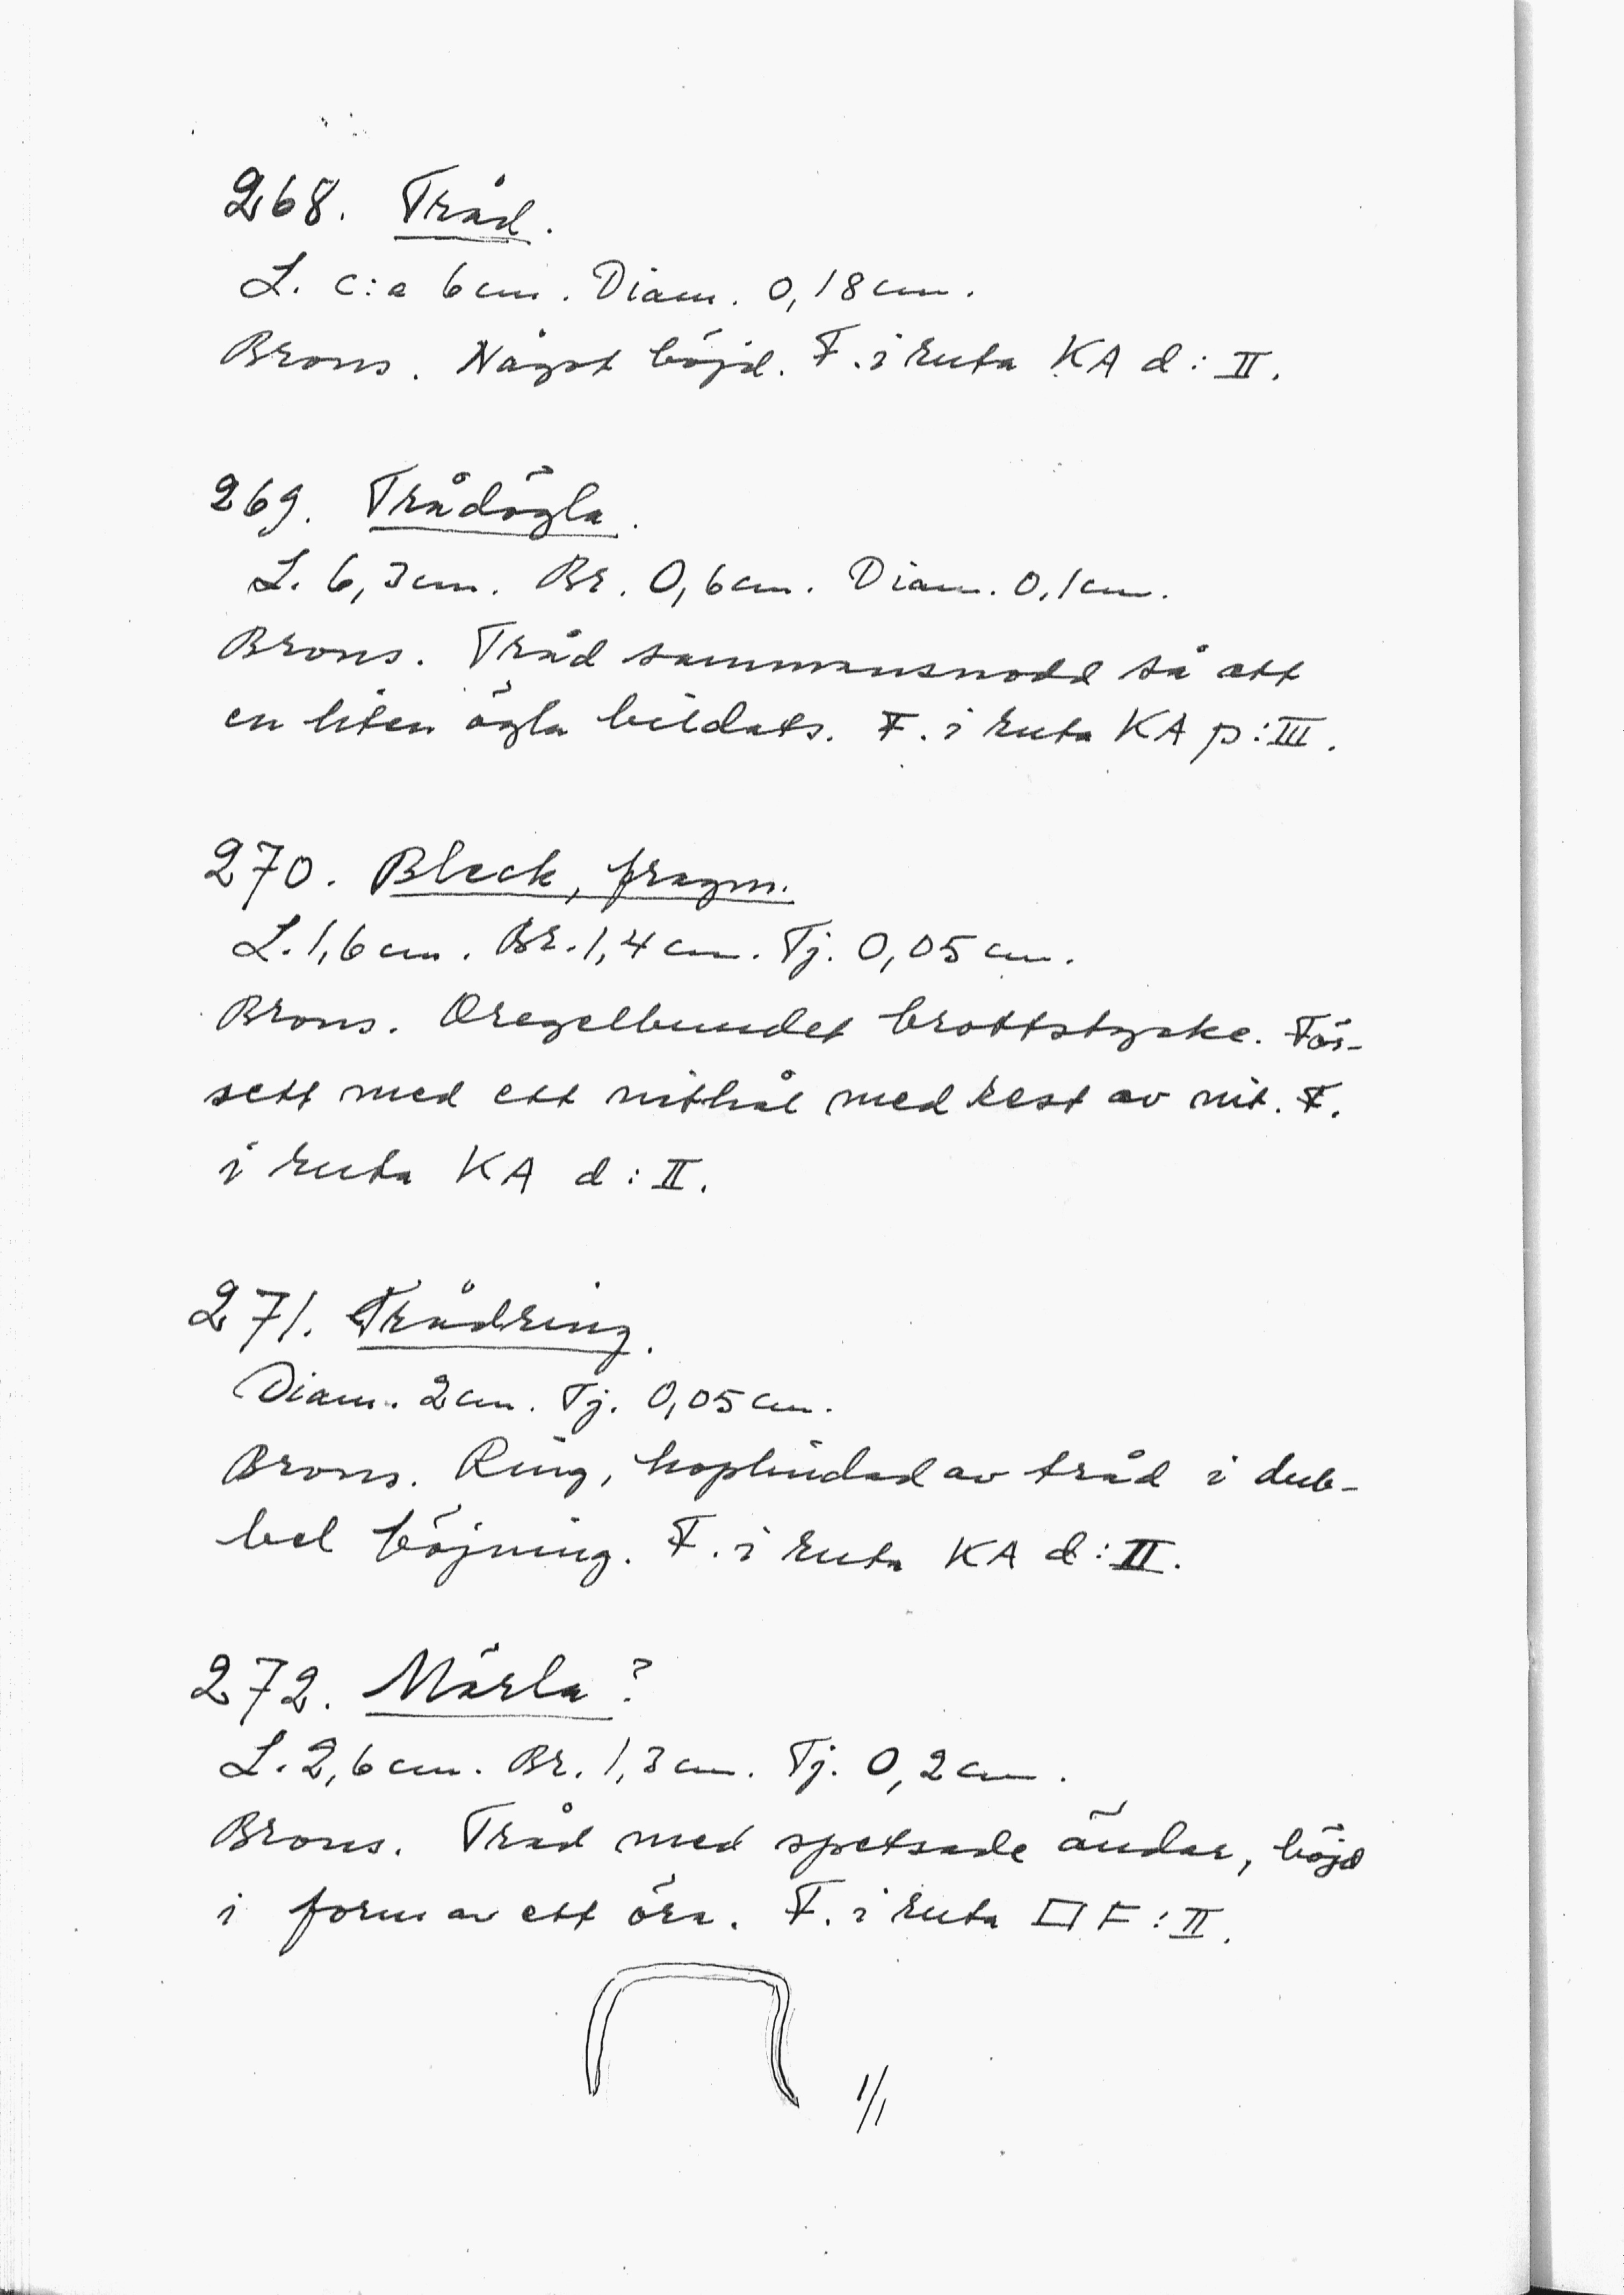 268. Tråd.
L. c:a 6 cm. Diam. 0,18 cm.
Brons. Något böjd. F. i ruta KA d:II.
269. Trådögla.
L. 6,3 cm. Br. 0,6 cm. Diam. 0,1 cm.
Brons. Tråd sammansnodd så att
en liten ögla bildats. F. i ruta KA p:III.
270. Bleck, fragm.
L. 1,6 cm. Br. 1,4 cm. Tj. 0,05 cm.
Brons. Oregelbundet brottstycke. För-
sett med ett nithål med rest av nit. F.
i ruta KA d:II.
271. Trådring.
Diam. 2 cm. Tj. 0,05 cm.
Brons. Ring, hoplindad av tråd i dub-
bel böjning. F. i ruta KA d:II.
272. Märla?
L. 2,6 cm. Br. 1,3 cm. Tj. 0,2 cm.
Brons. Tråd med spetsade ändar, böjd
i form av ett öra. F. i ruta F:II.
1/1